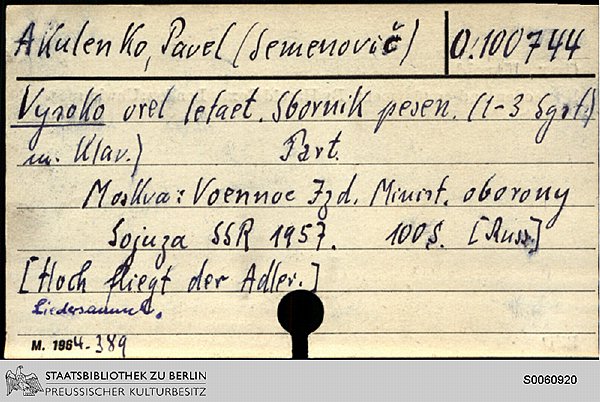 Akulenko, Pavel (Semenovič) O.100744
Vysoko orel letaet. Sbornik pesen. (1-3 Sgst.
m. Klav.) Part.
Moskva: Voennoe Izd. Minist. oborony
Sojuza SSR 1957. 100 S. [Russ.]
[Hoch fliegt der Adler.]
Liedersamml.
M. 1964.389
STAATSBIBLIOTHEK ZU BERLIN
PREUSSISCHER KULTURBESITZ
S0060920